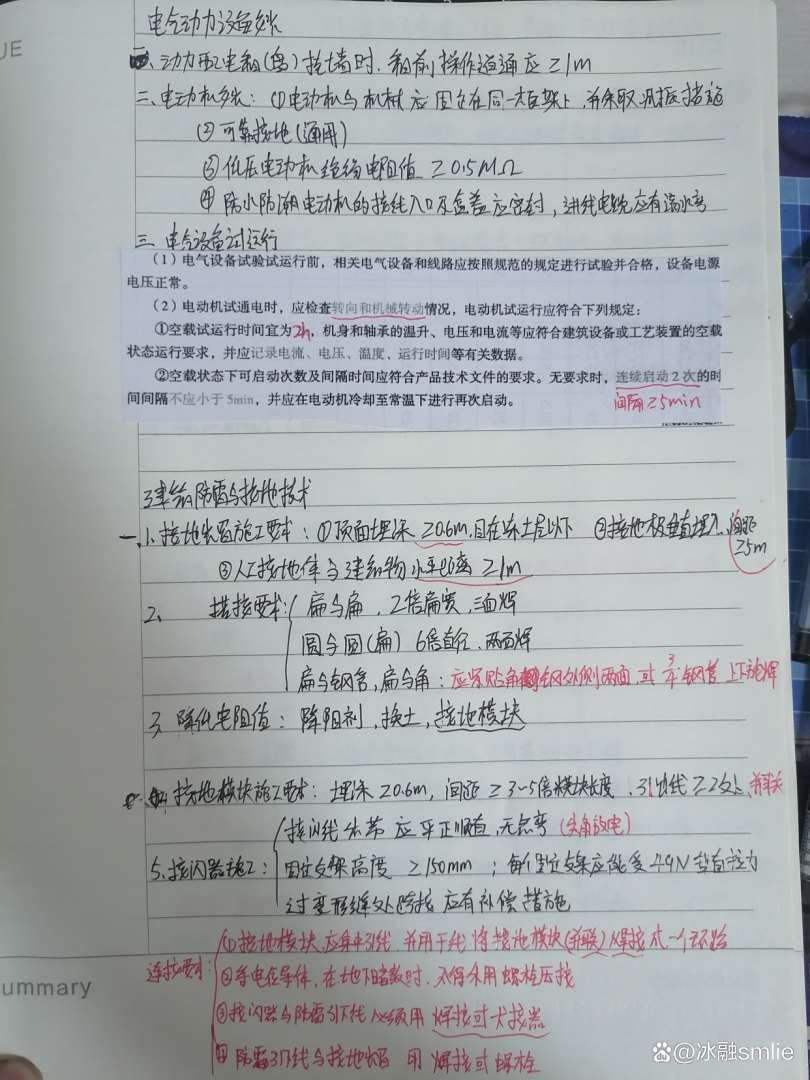 UE
电气动力设备安装
一、动力配电箱(盘)挂墙时,箱前操作通道应≥1m
二、电动机安装:①电动机与机械应固定在同一底架上,并采取减振措施
②可靠接地(通用)
③低压电动机绝缘电阻值≥0.5MΩ
④防水防潮电动机的接线入口及盒盖应密封,进线电缆应有滴水弯
三、电气设备试运行
(1)电气设备试验试运行前,相关电气设备和线路应按照规范的规定进行试验并合格,设备电源
电压正常。
(2)电动机试通电时,应检查转向和机械转动情况,电动机试运行应符合下列规定:
①空载试运行时间宜为2h,机身和轴承的温升、电压和电流等应符合建筑设备或工艺装置的空载
状态运行要求,并应记录电流、电压、温度、运行时间等有关数据。
②空载状态下可启动次数及间隔时间应符合产品技术文件的要求。无要求时,连续启动2次的时
间间隔不应小于5min,并应在电动机冷却至常温下进行再次启动。
间隔≥5min
建筑防雷与接地技术
一、1、接地装置施工要求:①顶面埋深≥0.6m,且在冻土层以下 ②接地极垂直埋入,间距
≥5m
③人工接地体与建筑物水平距离≥1m
2、搭接要求:扁与扁,2倍扁宽,三面焊
圆与圆(扁)6倍直径,两面焊
扁与钢管,扁与角:应紧贴角钢外侧两面,或3/4钢管上下施焊
3、降低电阻值:降阻剂,换土,接地模块
接地模块施工要求:埋深≥0.6m,间距≥3~5倍模块长度,引出线≥2处,并联
接闪线、带应平正顺直,无急弯(尖角放电)
5、接闪器施工:固定支架高度≥150mm;每个固定支架应能承受49N垂直拉力
过变形缝处跨接应有补偿措施
连接要求:①接地模块应集中引线,并用干线将接地模块(并联)焊接成一个环路
②等电位导体,在地下暗敷时,不得采用螺栓压接
③接闪器与防雷引下线必须用焊接或卡接器
④防雷引下线与接地装置用焊接或螺栓
ummary
@冰融smlie